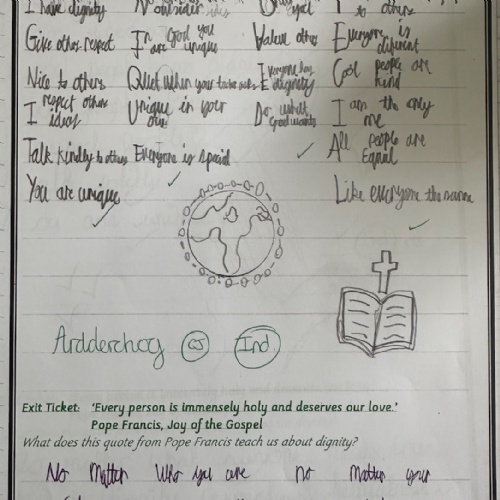 I have dignity No outsider
Give others respect In God you are unique Value others Everyone is different
Nice to others Quiet when your Everyone has dignity Cool people are kind
I respect others ideas Unique in your own Do what God wants I am the only me
Talk kindly to others Everyone is special All people are Equal
You are unique Like everyone the same
Ardderchog CS Ind.
Exit Ticket: 'Every person is immensely holy and deserves our love.'
Pope Francis, Joy of the Gospel
What does this quote from Pope Francis teach us about dignity?
No Matter Who you are no matter your